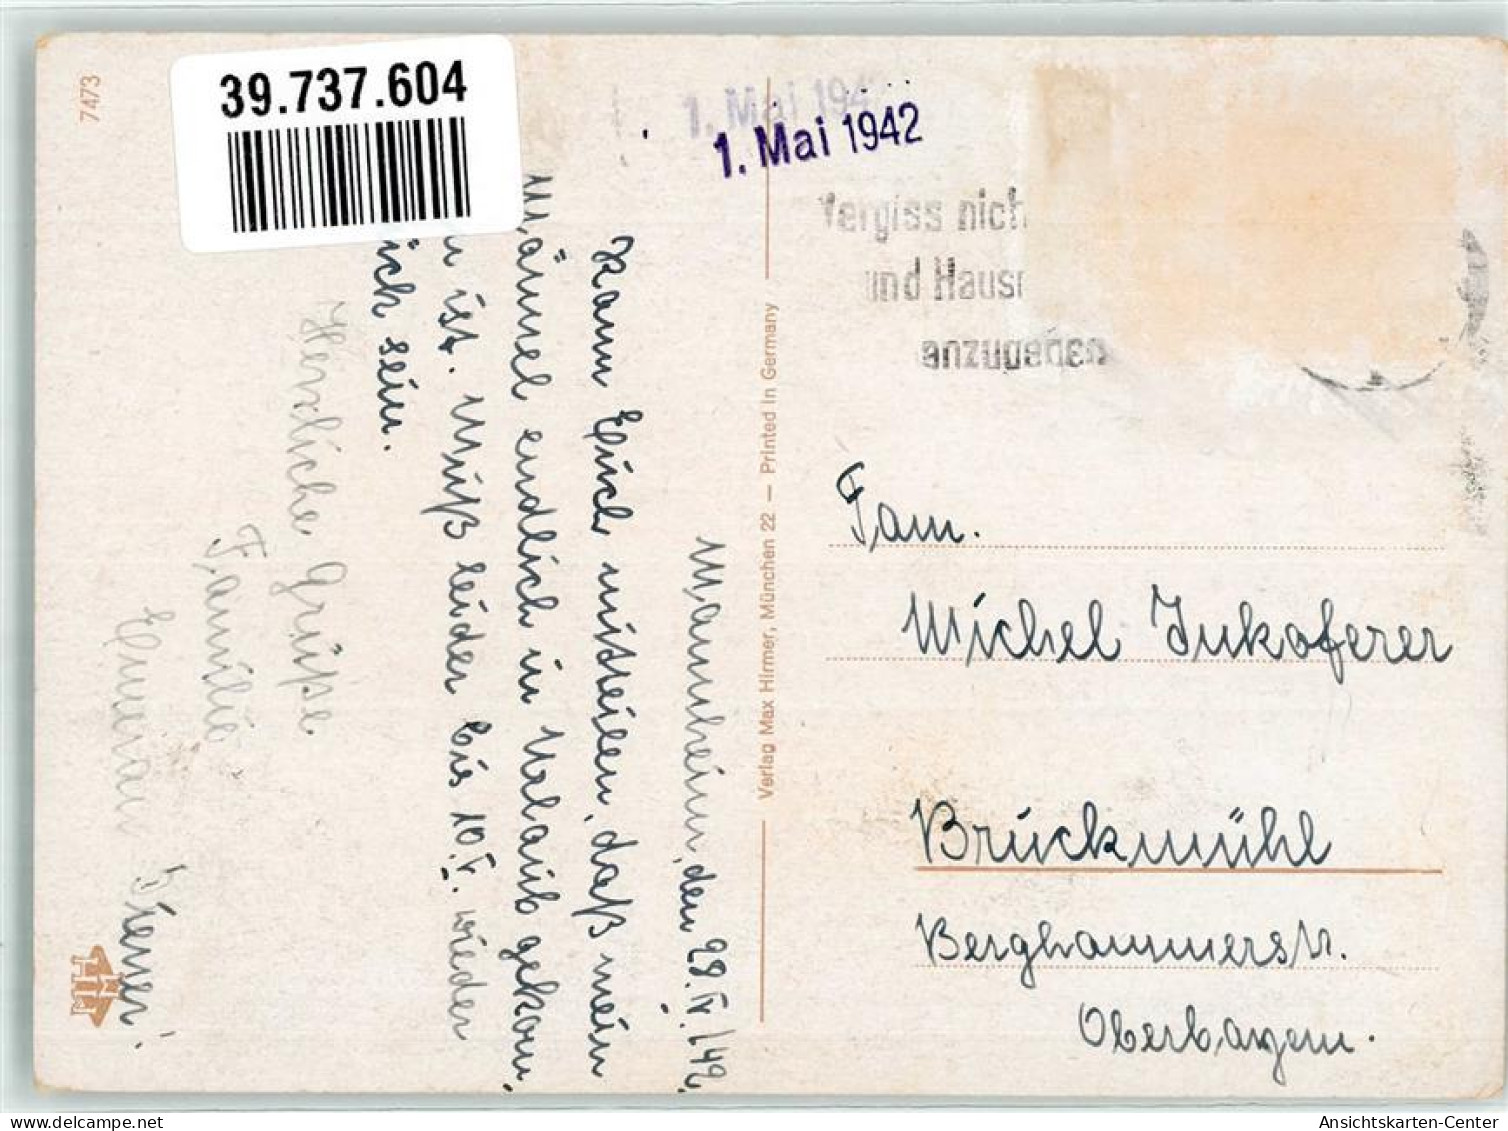 7473
39.737.604
1. Mai 1942
1. Mai 1942
Vergiss nich
und Haus
anzugeben
Mannheim, den 28. V. /42.
Kann Euch mitteilen, daß mein
Männel endlich in Urlaub gekom,
ist. Muß leider bis 10. V. wieder
sein.
Herzliche Grüße
Familie
Verlag Max Hirmer, München 22 — Printed in Germany
Fam.
Michel Inkoferer
Brückmühl
Berghammerstr.
Oberbayern.
Ansichtskarten-Center